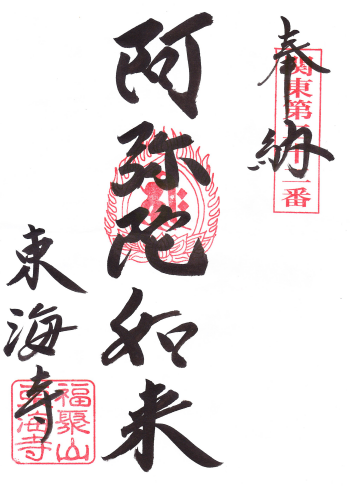 奉納
関東第 番
阿弥陀如来
東海寺
福聚山
東海寺